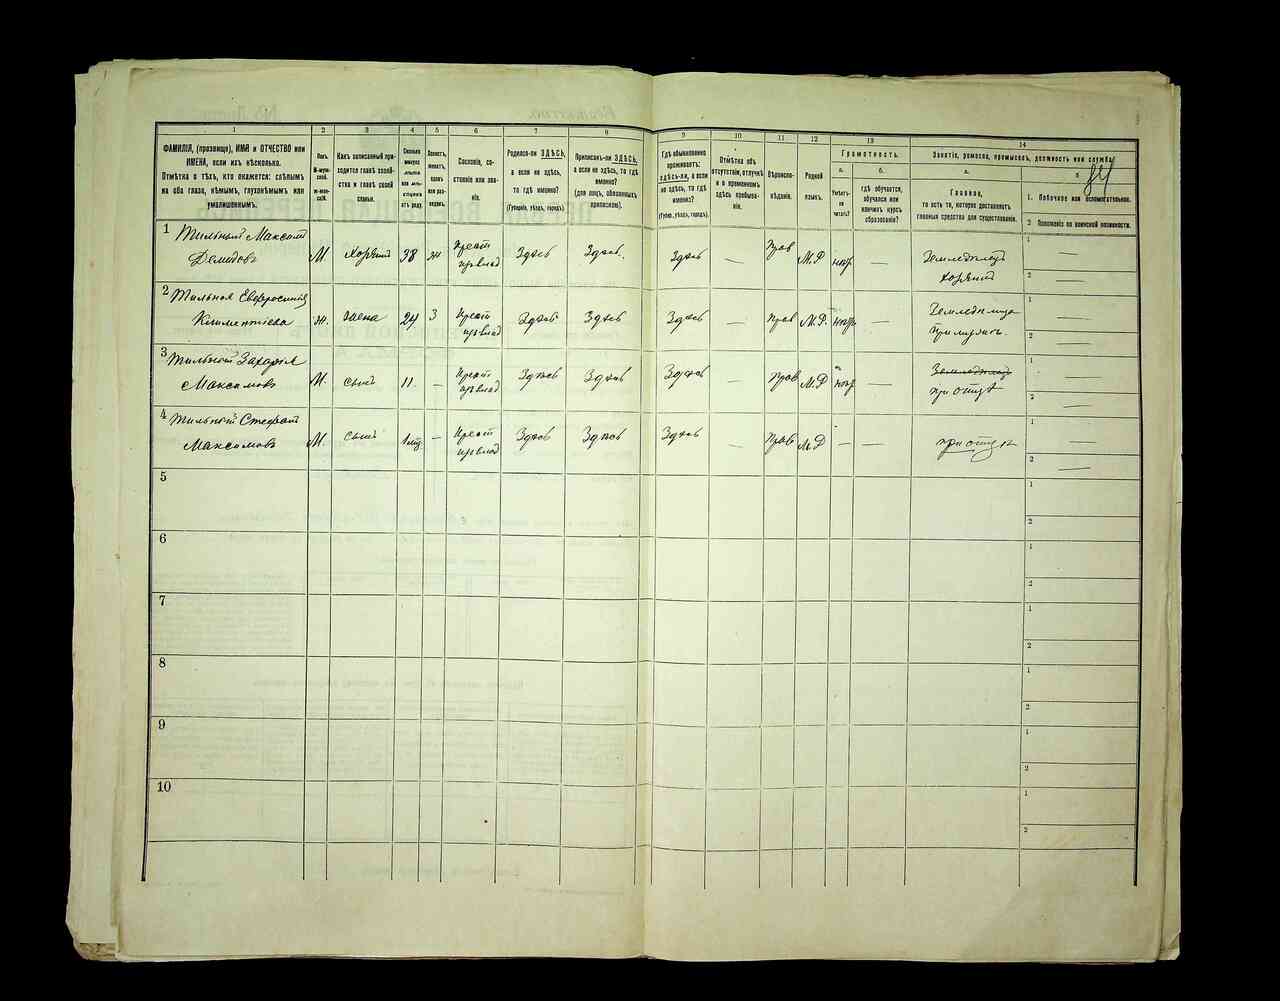 1
2
3
4
5
6
7
8
9
10
11
12
13
14
ФАМИЛІЯ, (прозвище), ИМЯ и ОТЧЕСТВО или
ИМЕНА, если ихъ нѣсколько.
Отмѣтка о тѣхъ, кто окажется: слѣпымъ
на оба глаза, нѣмымъ, глухонѣмымъ или
умалишеннымъ.
Полъ.
М-муж-
ской.
ж-жен-
скій.
Какъ записанный при-
ходится главѣ хозяй-
ства и главѣ своей
семьи.
Сколько
минуло
лѣтъ
или мѣ-
сяцевъ
отъ роду.
Холостъ,
женатъ,
вдовъ
или раз-
веденъ.
Сословіе, со-
стояніе или зва-
ніе.
Родился-ли ЗДѢСЬ,
а если не здѣсь,
то гдѣ именно?
(Губернія, уѣздъ, городъ).
Приписанъ-ли ЗДѢСЬ,
а если не здѣсь, то гдѣ
именно?
(для лицъ, обязанныхъ
припискою).
Гдѣ обыкновенно
проживаетъ:
здѣсь-ли, а если
не здѣсь, то гдѣ
именно?
(Губер., уѣздъ, городъ).
Отмѣтка объ
отсутствіи, отлучкѣ
и о временномъ
здѣсь пребыва-
ніи.
Вѣроиспо-
вѣданіе.
Родной
языкъ.
Грамотность.
а.
Умѣетъ-
ли
читать?
б.
гдѣ обучается,
обучался или
кончилъ курсъ
образованія?
Занятіе, ремесло, промыселъ, должность или служба.
а.
Главное,
то есть то, которое доставляетъ
главныя средства для существованія.
б.
84
1. Побочное или вспомогательное.
2 Положеніе по воинской повинности.
1
Тильный Максим
Демидовъ
М.
Хозяин
38
ж
Крест
Здѣсь
Здѣсь
Здѣсь
—
Прав
М.Р
—
Земледѣлец
Хозяин
1 —
2 —
2
Тильная Евфросинія
Климентіева
Ж.
Жена
24
З
Крест
Здѣсь
Здѣсь
Здѣсь
—
Прав
М.Р.
—
1 —
2 —
3
Тильный Захарія
Максимовъ
М.
Сынъ
11.
—
Крест
Здѣсь
Здѣсь
Здѣсь
—
Прав
М.Р
—
при отцѣ
1 —
2 —
4
Тильный Стефан
Максимовъ
М.
Сынъ
—
Крест
Здѣсь
Здѣсь
Здѣсь
—
Прав
М.Р
—
—
при отцѣ
1 —
2 —
5
1
2
6
1
2
7
1
2
8
1
2
9
1
2
10
1
2